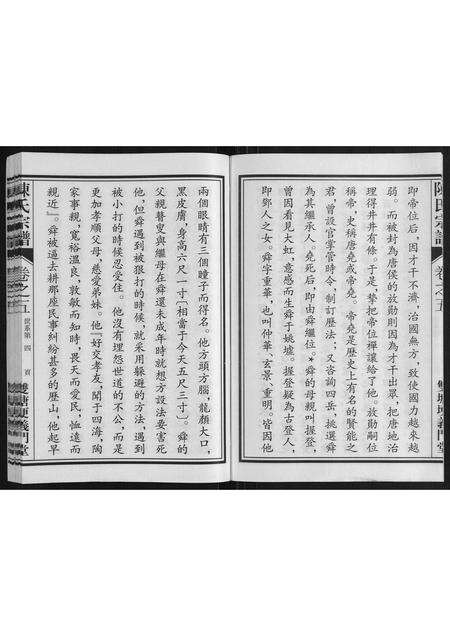 陳氏宗譜
卷之五
雙塘堍義門堂
即帝位后,因才干不濟,治國無方,致使國力越來越
弱。而被封為唐侯的放勛則因為才干出眾,把唐地治
理得井井有條。于是,摯把帝位禪讓給了他。放勛嗣位
稱帝,史稱唐堯或帝堯。帝堯是歷史上有名的賢能之
君,曾設官掌管時令,制訂歷法,又咨詢四岳,挑選舜
為其繼承人。堯死后,即由舜繼位。*舜的母親叫握登,
曾因看見大虹,意感而生舜于姚墟。握登疑為古登人,
即鄧人之女。舜字重華,也叫仲華、玄景、重明。皆因他
兩個眼睛有三個瞳子而得名。他方頭方腦,龍顏大口,
黑皮膚,身高六尺一寸(相當于今天五尺三寸)。舜的
父親瞽叟與繼母在舜還未成年時就想方設法要害死
他,但舜遇到被狠打的時候,就采用躲避的方法,遇到
被小打的時候忍受住。他沒有埋怨世道的不公,而是
更加孝順父母,慈愛弟妹。他『好交孝友,聞于四海,陶
家事親,寬裕溫良,敦敏而知時,畏天而愛民,恤遠而
親近』。舜被過去耕那座民事糾紛甚多的歷山,他起早
陳氏宗譜
卷之五
世系第四頁
雙塘堍義門堂